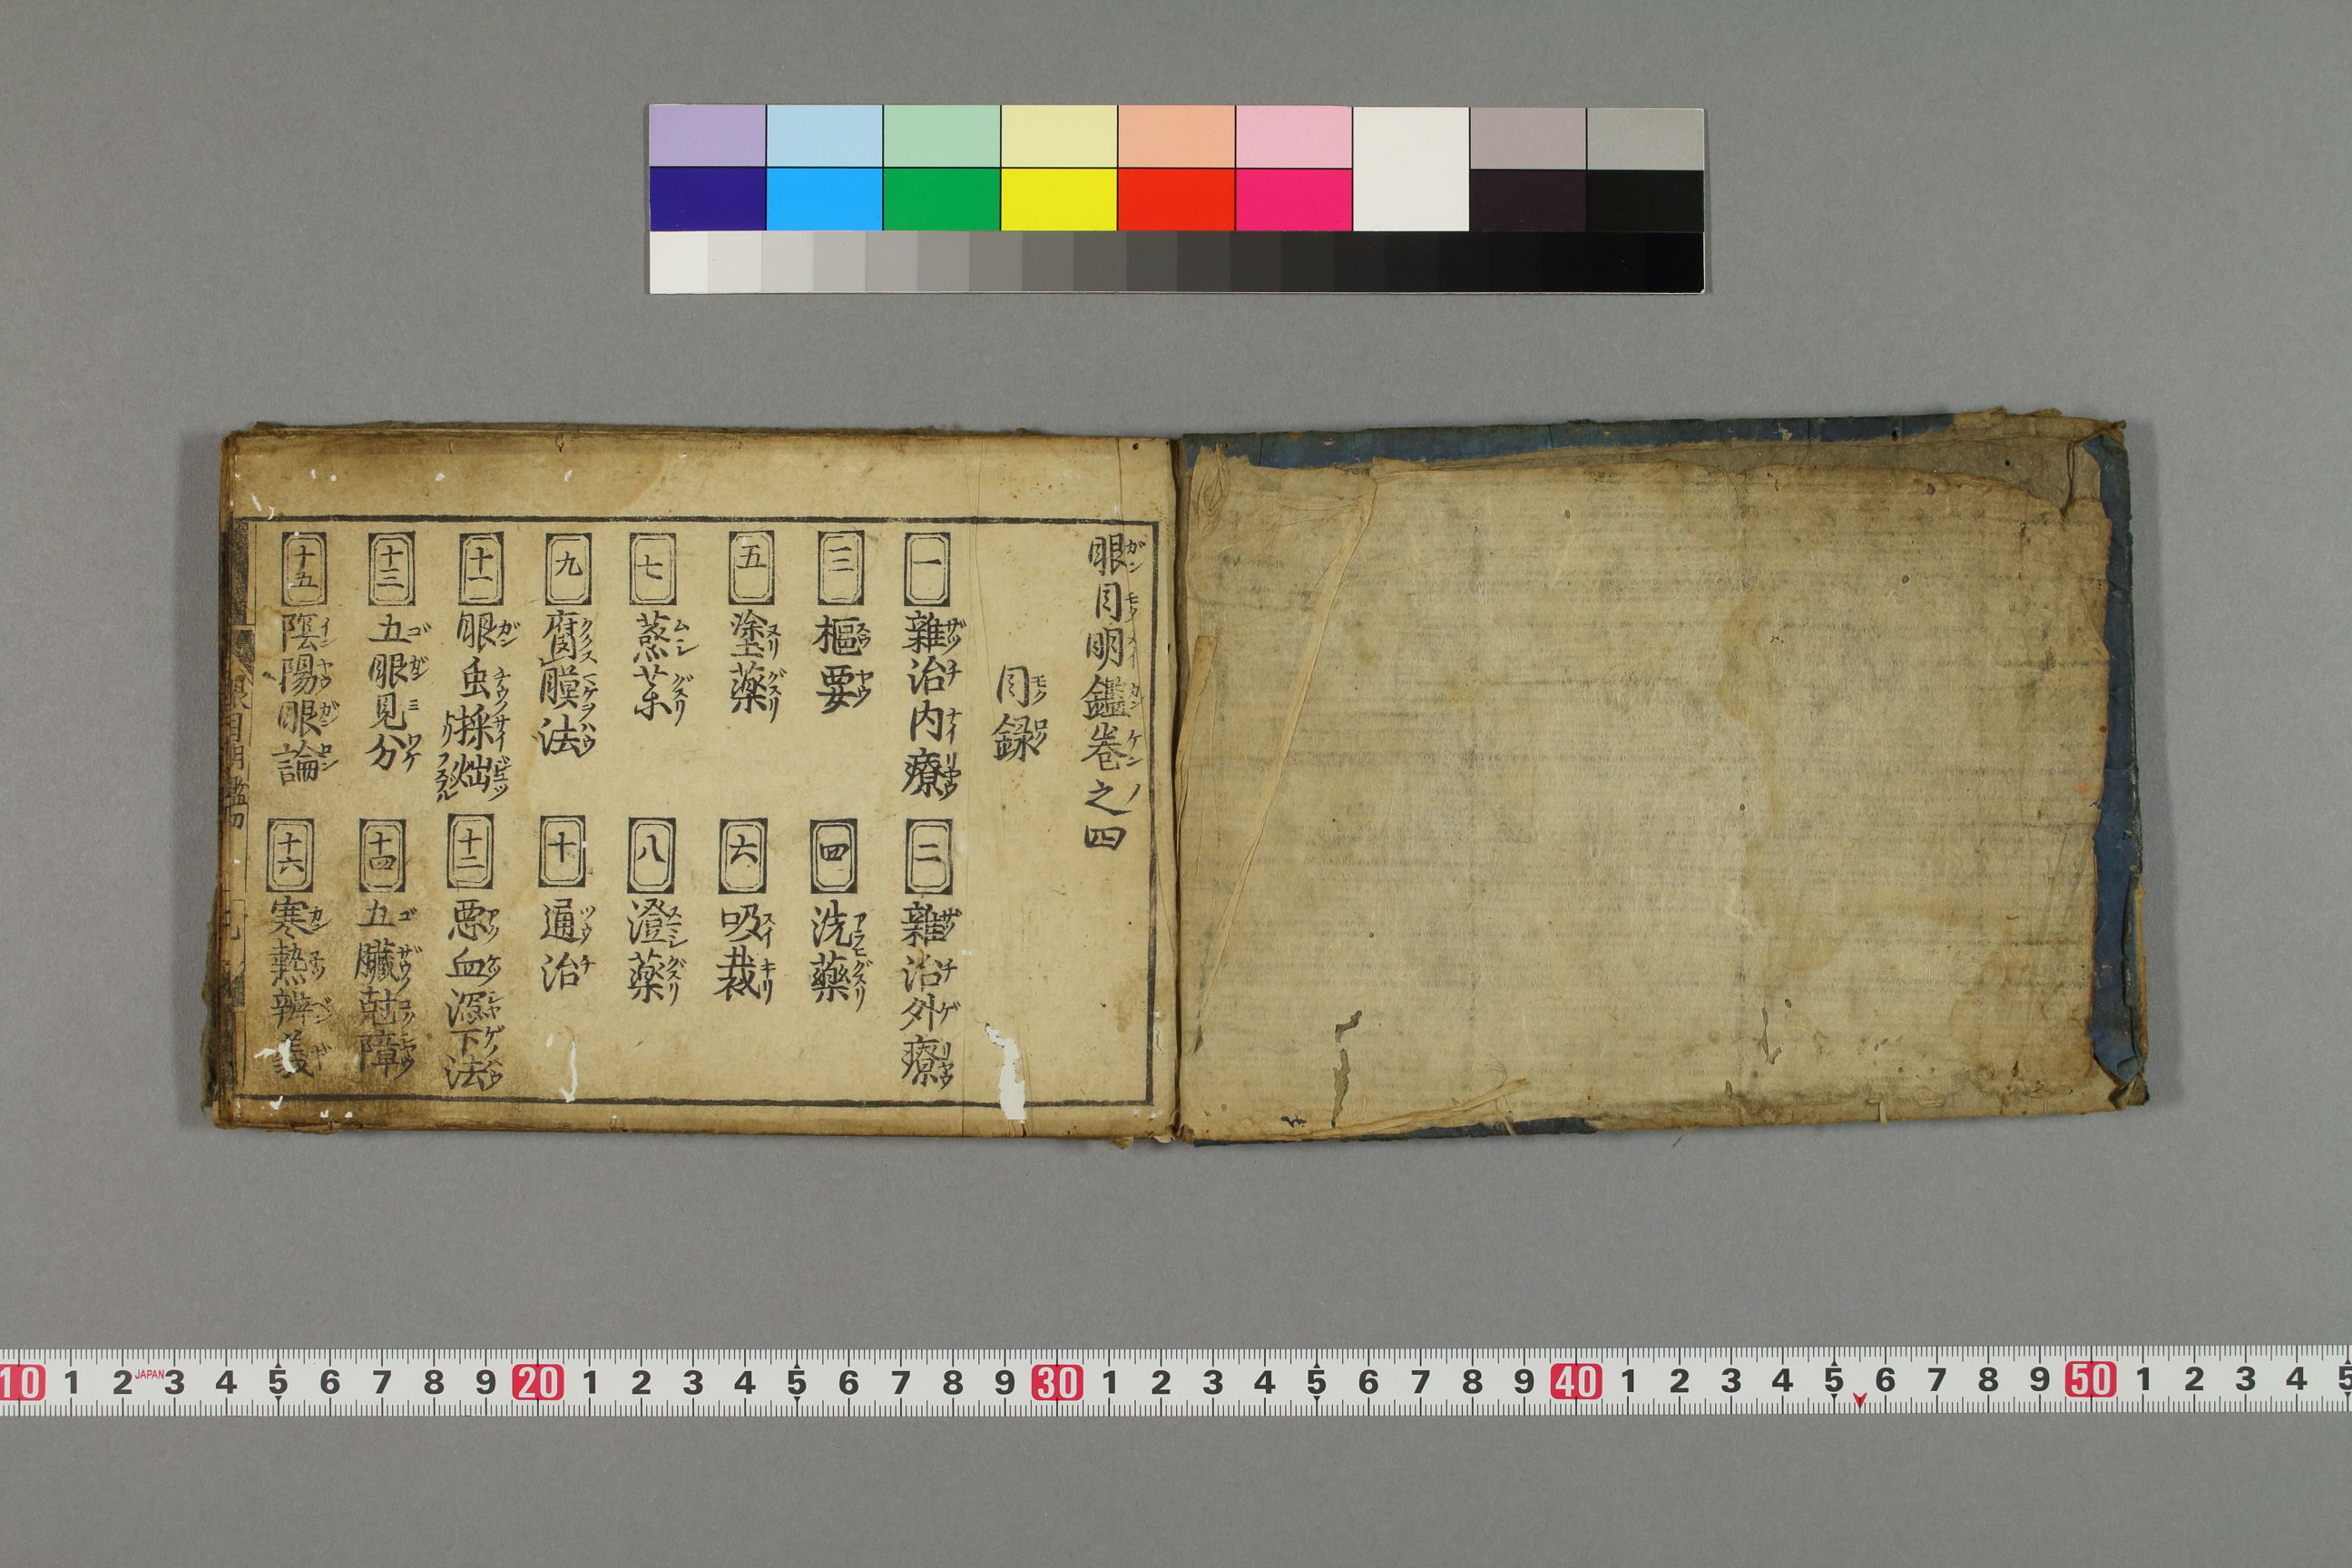 眼目明鑑巻之四
目録
一 雜治内療
二 雜治外療
三 樞要
四 洗藥
五 塗藥
六 吸裁
七 蒸茶
八 澄藥
九 腐膜法
十 通治
十一 眼虫採
十二 悪血瀉下法
十三 五眼見分
十四 五臓尅障
十五 陰陽眼論
十六 寒熱辨義
眼目明鑑四
10 1 2 JAPAN 3 4 5 6 7 8 9 20 1 2 3 4 5 6 7 8 9 30 1 2 3 4 5 6 7 8 9 40 1 2 3 4 5 6 7 8 9 50 1 2 3 4 5